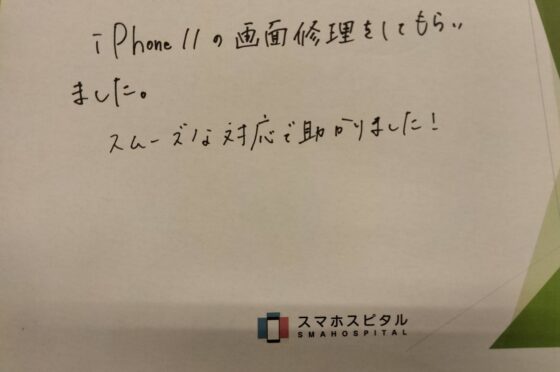 iPhone11の画面修理をしてもらい
ました。
スムーズな対応で助かりました!
スマホスピタル
SMAHOSPITAL